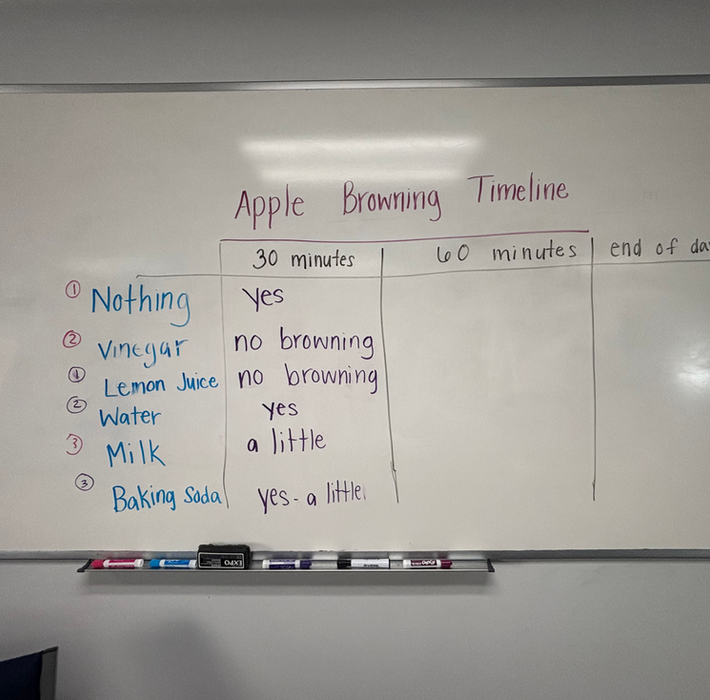 Apple Browning Timeline
30 minutes 60 minutes end of da
① Nothing yes
② Vinegar no browning
① Lemon Juice no browning
② Water yes
③ Milk a little
③ Baking Soda yes - a little
EXPO
EXPO